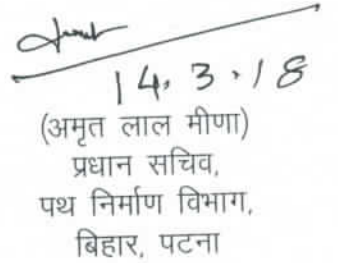 14.3.18
(अमृत लाल मीणा)
प्रधान सचिव,
पथ निर्माण विभाग,
बिहार, पटना